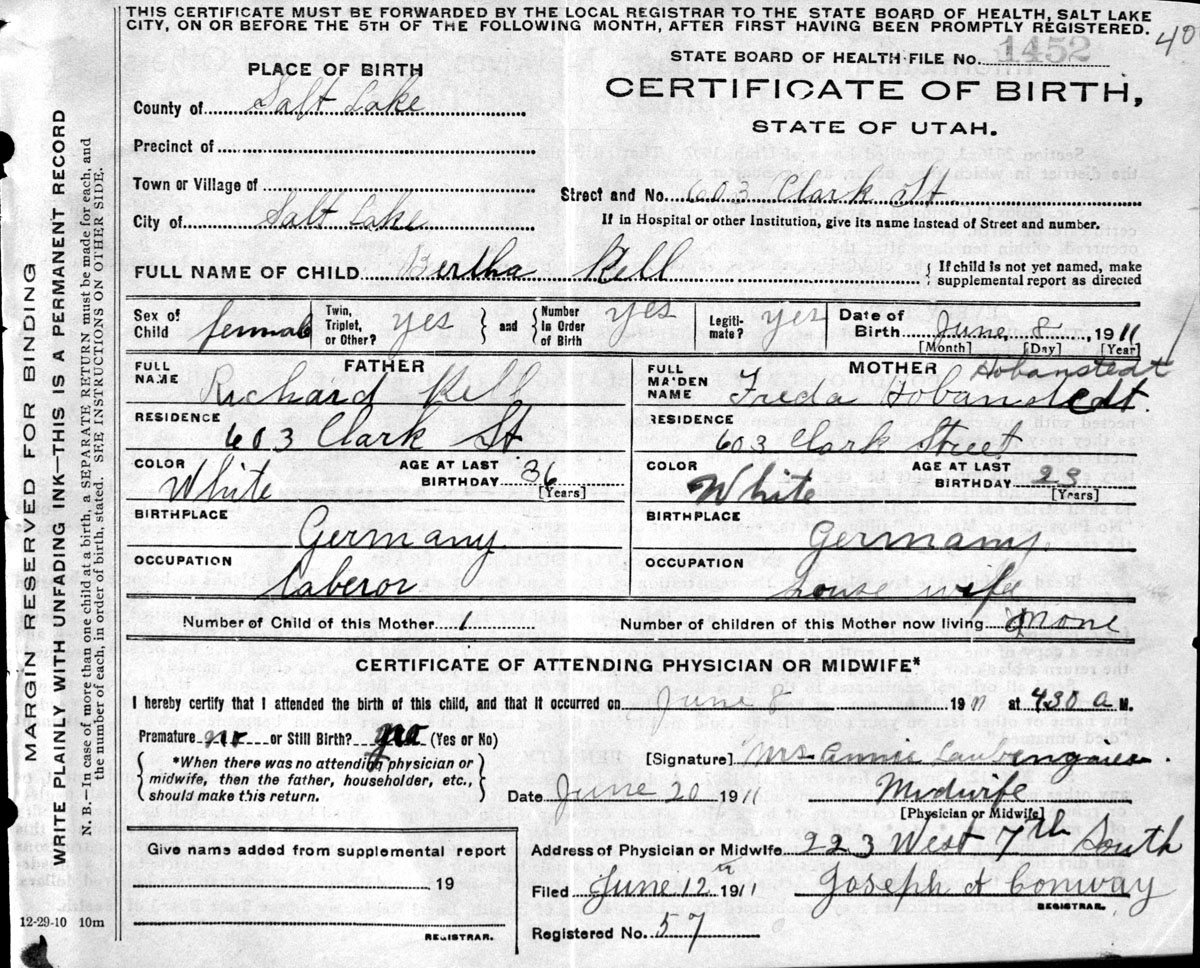 THIS CERTIFICATE MUST BE FORWARDED BY THE LOCAL REGISTRAR TO THE STATE BOARD OF HEALTH, SALT LAKE
CITY, ON OR BEFORE THE 5TH OF THE FOLLOWING MONTH, AFTER FIRST HAVING BEEN PROMPTLY REGISTERED.
40
STATE BOARD OF HEALTH FILE No. 1452
PLACE OF BIRTH
CERTIFICATE OF BIRTH,
STATE OF UTAH.
County of Salt Lake
Precinct of
Town or Village of
Street and No. 603 Clark St.
City of Salt Lake
If in Hospital or other Institution, give its name instead of Street and number.
FULL NAME OF CHILD Bertha Kell
If child is not yet named, make
supplemental report as directed
Sex of Child female
Twin, Triplet, or Other? yes
and
Number In Order of Birth yes
Legiti- mate? yes
Date of Birth June, 8, 1911
[Month] [Day] [Year]
FATHER
FULL NAME Richard Kell
RESIDENCE 603 Clark St
COLOR White
AGE AT LAST BIRTHDAY 36
[Years]
BIRTHPLACE Germany
OCCUPATION Laberor
MOTHER Hobanstedt
FULL MAIDEN NAME Freda Hobanstedt.
RESIDENCE 603 Clark Street
COLOR White
AGE AT LAST BIRTHDAY 23
[Years]
BIRTHPLACE Germany
OCCUPATION house wife
Number of Child of this Mother 1
Number of children of this Mother now living None
CERTIFICATE OF ATTENDING PHYSICIAN OR MIDWIFE*
I hereby certify that I attended the birth of this child, and that it occurred on June 8 1911 at 4.30 a M.
Premature no or Still Birth? yes (Yes or No)
*When there was no attending physician or
midwife, then the father, householder, etc.,
should make this return.
[Signature] Mrs Annie
Date June 20 1911
Midwife
[Physician or Midwife]
Give name added from supplemental report
19
REGISTRAR.
Address of Physician or Midwife 223 West 7th South
Filed June 12th 1911
Joseph A Conway
REGISTRAR.
Registered No. 57
12-29-10 10m
MARGIN RESERVED FOR BINDING
WRITE PLAINLY WITH UNFADING INK—THIS IS A PERMANENT RECORD
N. B.—In case of more than one child at a birth, a SEPARATE RETURN must be made for each, and
the number of each, in order of birth, stated. SEE INSTRUCTIONS ON OTHER SIDE.